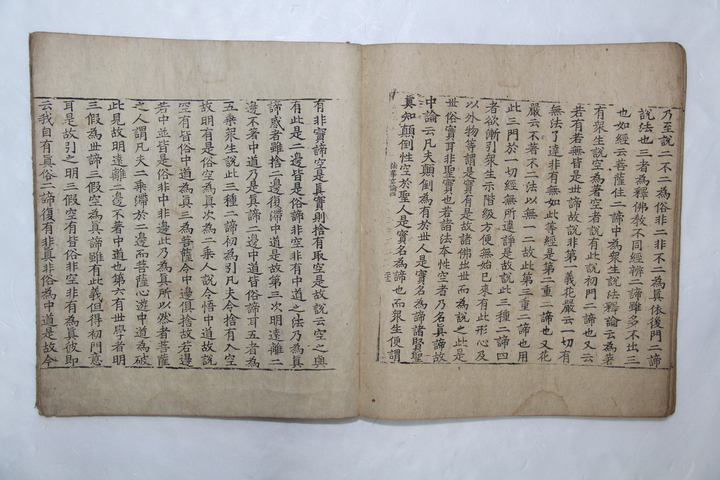 乃至說二不二為俗非二非不二為真依後門二諦
說法也三者為釋佛教不同經辨二諦雖多不出三
也如經云菩薩住二諦中為眾生說法釋論云為著
有眾生說空為著空者說有此說初門二諦也又云
若有若無皆是世諦故說非第一義花嚴云一切有
無法了達非有無如此等經是第二重二諦也又花
嚴云不著不二法以無一二故此第三重二諦也用
此三門於一切經無所違諍是故說此三種二諦四
者欲漸引眾生示階級方便無始已來有此形心及
以外物等謂是實有是故諸佛出世而為說之此是
世俗實耳非聖實也若諸法本性空者乃名真諦故
中論云凡夫顛倒為有於世人是實名為諦諸賢聖
真知顛倒性空於聖人是實名為諦也而眾生便謂
有非實諦空是真實則捨有取空是故說云空之與
有此是二邊皆是俗諦非空非有中道之法乃為真
諦或者雖捨二邊復滯中道是故第三次明遠離二
邊不著中道乃是真諦二邊中道皆俗諦耳五者為
五乘眾生說此三種二諦初為引凡夫令捨有入空
故明有是俗空為真次為二乘人說令悟中道故說
空有皆俗中道為真三為菩薩令中邊俱捨故若邊
若中並皆是俗非中非邊此乃為真所以然者菩薩
之人謂凡夫二乘滯於二邊而菩薩心遊中道為破
此見故明遠離二邊不著中道也第六有世學者明
三假為世諦三假空為真諦雖有此義但得初門意
耳是故引之明三假空有皆俗非空非有為真彼即
云我自有真俗二諦復有非真非俗為中道是故今